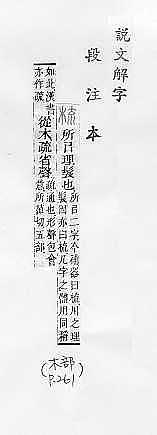 說文解字
段注本
梳 所㠯理髮也
所㠯二字今補器曰梳用之理
髮因亦曰梳凡字之體用同稱
如此漢書
亦作疏
從木疏省聲
疏通也形聲包會
意所菹切五部
(木部
P.261)